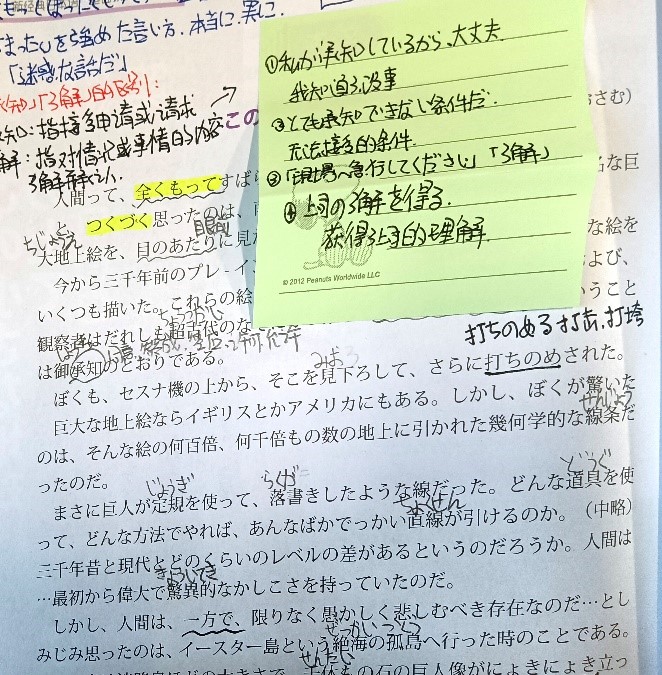 まったいを強めた言い方. 本当に. 実に.
「迷惑な話だ」
知」「了解」的区别:
知: 指接多申请或请求
解: 指对情况或事情的内容
この
おさむ）
①私が承知しているから、大丈夫
我知道了,没事
②とても承知できない条件だ.
无法接多的条件.
③「現場へ急行してください」「了解」
④上司の了解を得る.
获得了上司的理解.
© 2012 Peanuts Worldwide LLC
人間って、全くもってすばら
名な巨
と、つくづく思ったのは、
な絵を
ちじょうえ
大地上絵を、目のあたりに見
今から三千年前のプレ・イ
および、
いくつも描いた。これらの絵
いうこと
観察者はだれしも超古代のな
打ちのめる 打击,打垮
は御承知のとおりである。
みお
ぼくも、セスナ機の上から、そこを見下ろして、さらに打ちのめされた。
巨大な地上絵ならイギリスとかアメリカにもある。しかし、ぼくが驚いた
せんじょう
のは、そんな絵の何百倍、何千倍もの数の地上に引かれた幾何学的な線条だ
ったのだ。
じょうぎ らくが どうぐ
まさに巨人が定規を使って、落書きしたような線だった。どんな道具を使
ちょくせん
って、どんな方法でやれば、あんなばかでっかい直線が引けるのか。（中略）
三千年昔と現代とどのくらいのレベルの差があるというのだろうか。人間は
きょういてき
…最初から偉大で驚異的なかしこさを持っていたのだ。
しかし、人間は、一方で、限りなく愚かしく悲しむべき存在なのだ…とし
ぜっかい ことう
みじみ思ったのは、イースター島という絶海の孤島へ行った時のことである。
せんたい
千体もの石の巨人像がにょきにょき立っ